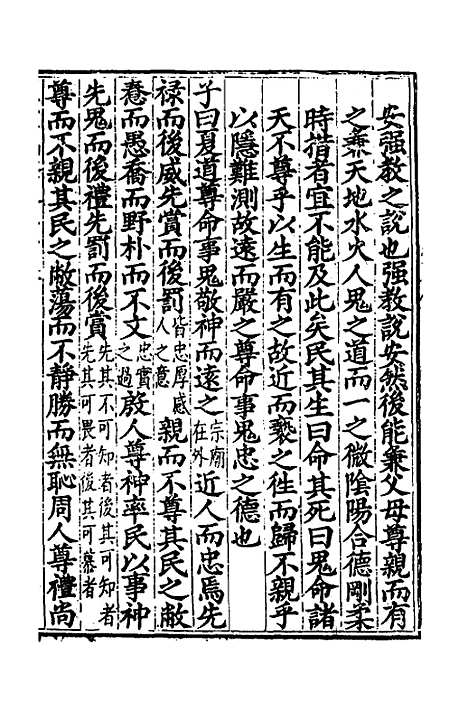 安强教之說也强教說安然後能兼父母尊親而有
之兼天地水火人鬼之道而一之微陰陽合德剛柔
時措者宜不能及此矣民其生曰命其死曰鬼命諸
天不尊乎以生而有之故近而褻之徃而歸不親乎
以隱難測故遠而嚴之尊命事鬼忠之德也
子曰夏道尊命事鬼敬神而遠之宗廟在外近人而忠焉先
禄而後威先賞而後罰皆忠厚感人之意親而不尊其民之敝
惷而愚喬而野朴而不文忠實之過殷人尊神率民以事神
先鬼而後禮先罰而後賞先其不可知者後其可知者先其可畏者後其可慕者
尊而不親其民之敝蕩而不静勝而無恥周人尊禮尚